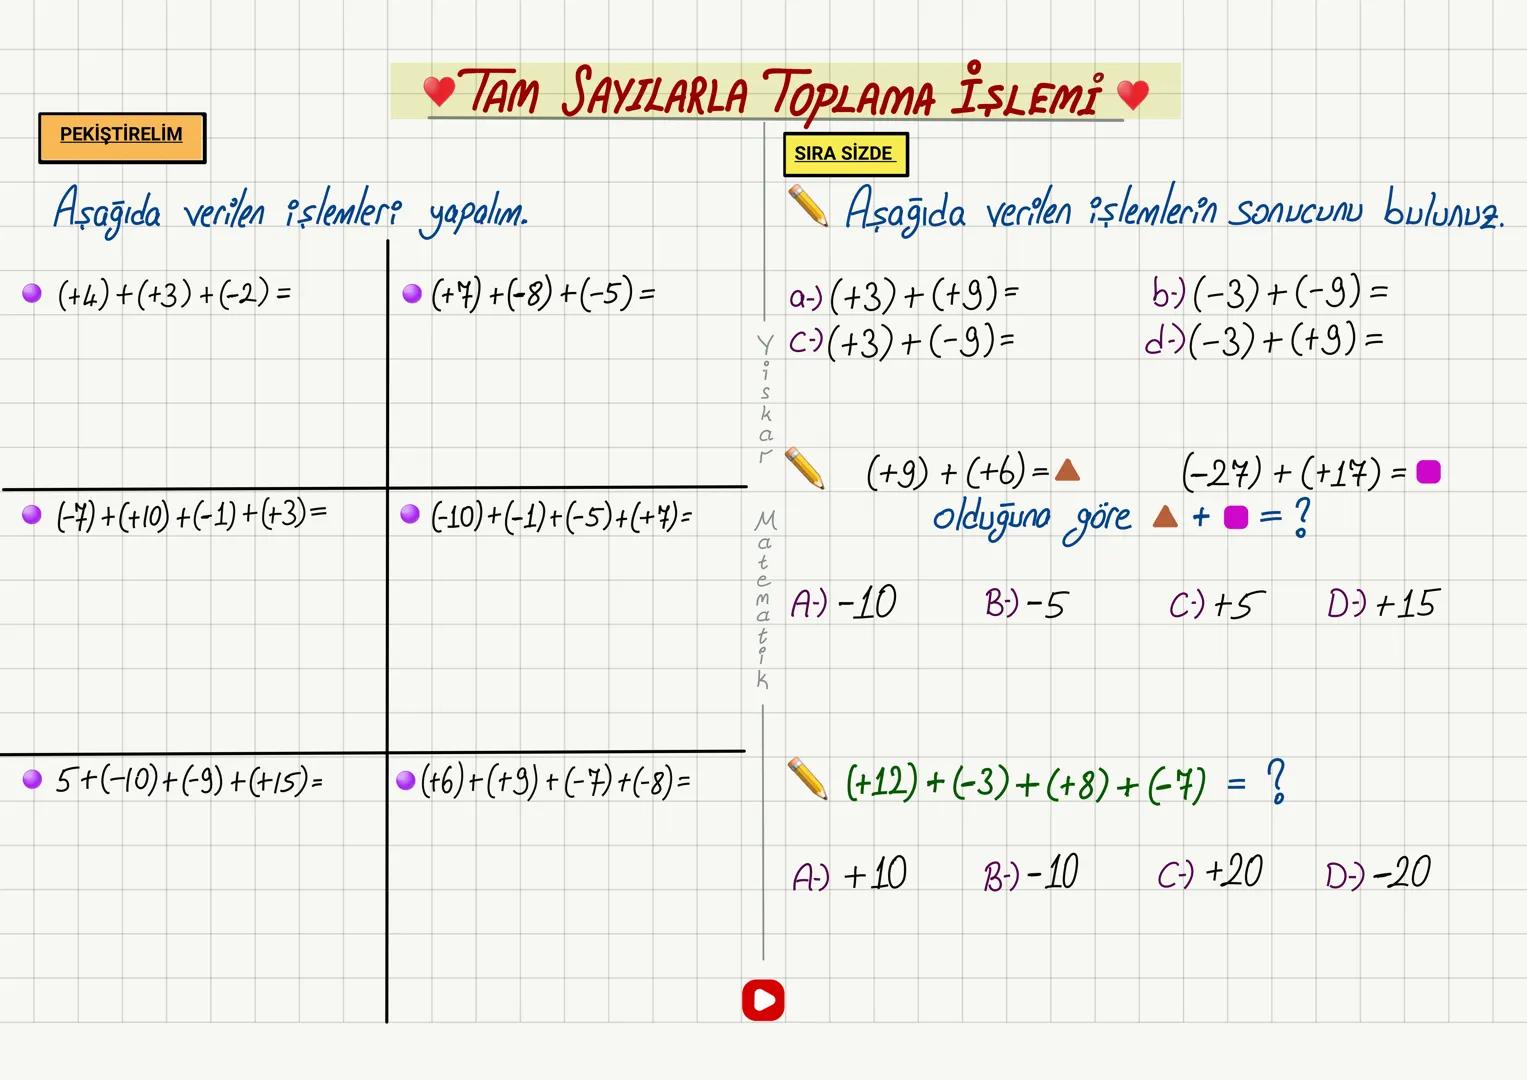 TAM SAYILARLA TOPLAMA İŞLEMİ
PEKİŞTİRELİM
Aşağıda verilen işlemleri yapalım.
(+4)+(+3)+(-2)=
(+7)+(-8)+(-5)=
(-7)+(+10)+(-1)+(+3)=
(-10)+(-1)+(-5)+(+7)=
5+(-10)+(-9)+(+15)=
(+6)+(+9)+(-7)+(-8)=
Yiskar Matematik
SIRA SİZDE
Aşağıda verilen işlemlerin sonucunu bulunuz.
a-) (+3)+(+9)=
b-) (-3)+(-9)=
c-) (+3)+(-9)=
d-) (-3)+(+9)=
(+9)+(+6)=▲ (-27)+(+17)=■
olduğuna göre ▲ + ■ = ?
A-) -10 B-) -5 C-) +5 D-) +15
(+12)+(-3)+(+8)+(-7) = ?
A-) +10 B-) -10 C-) +20 D-) -20